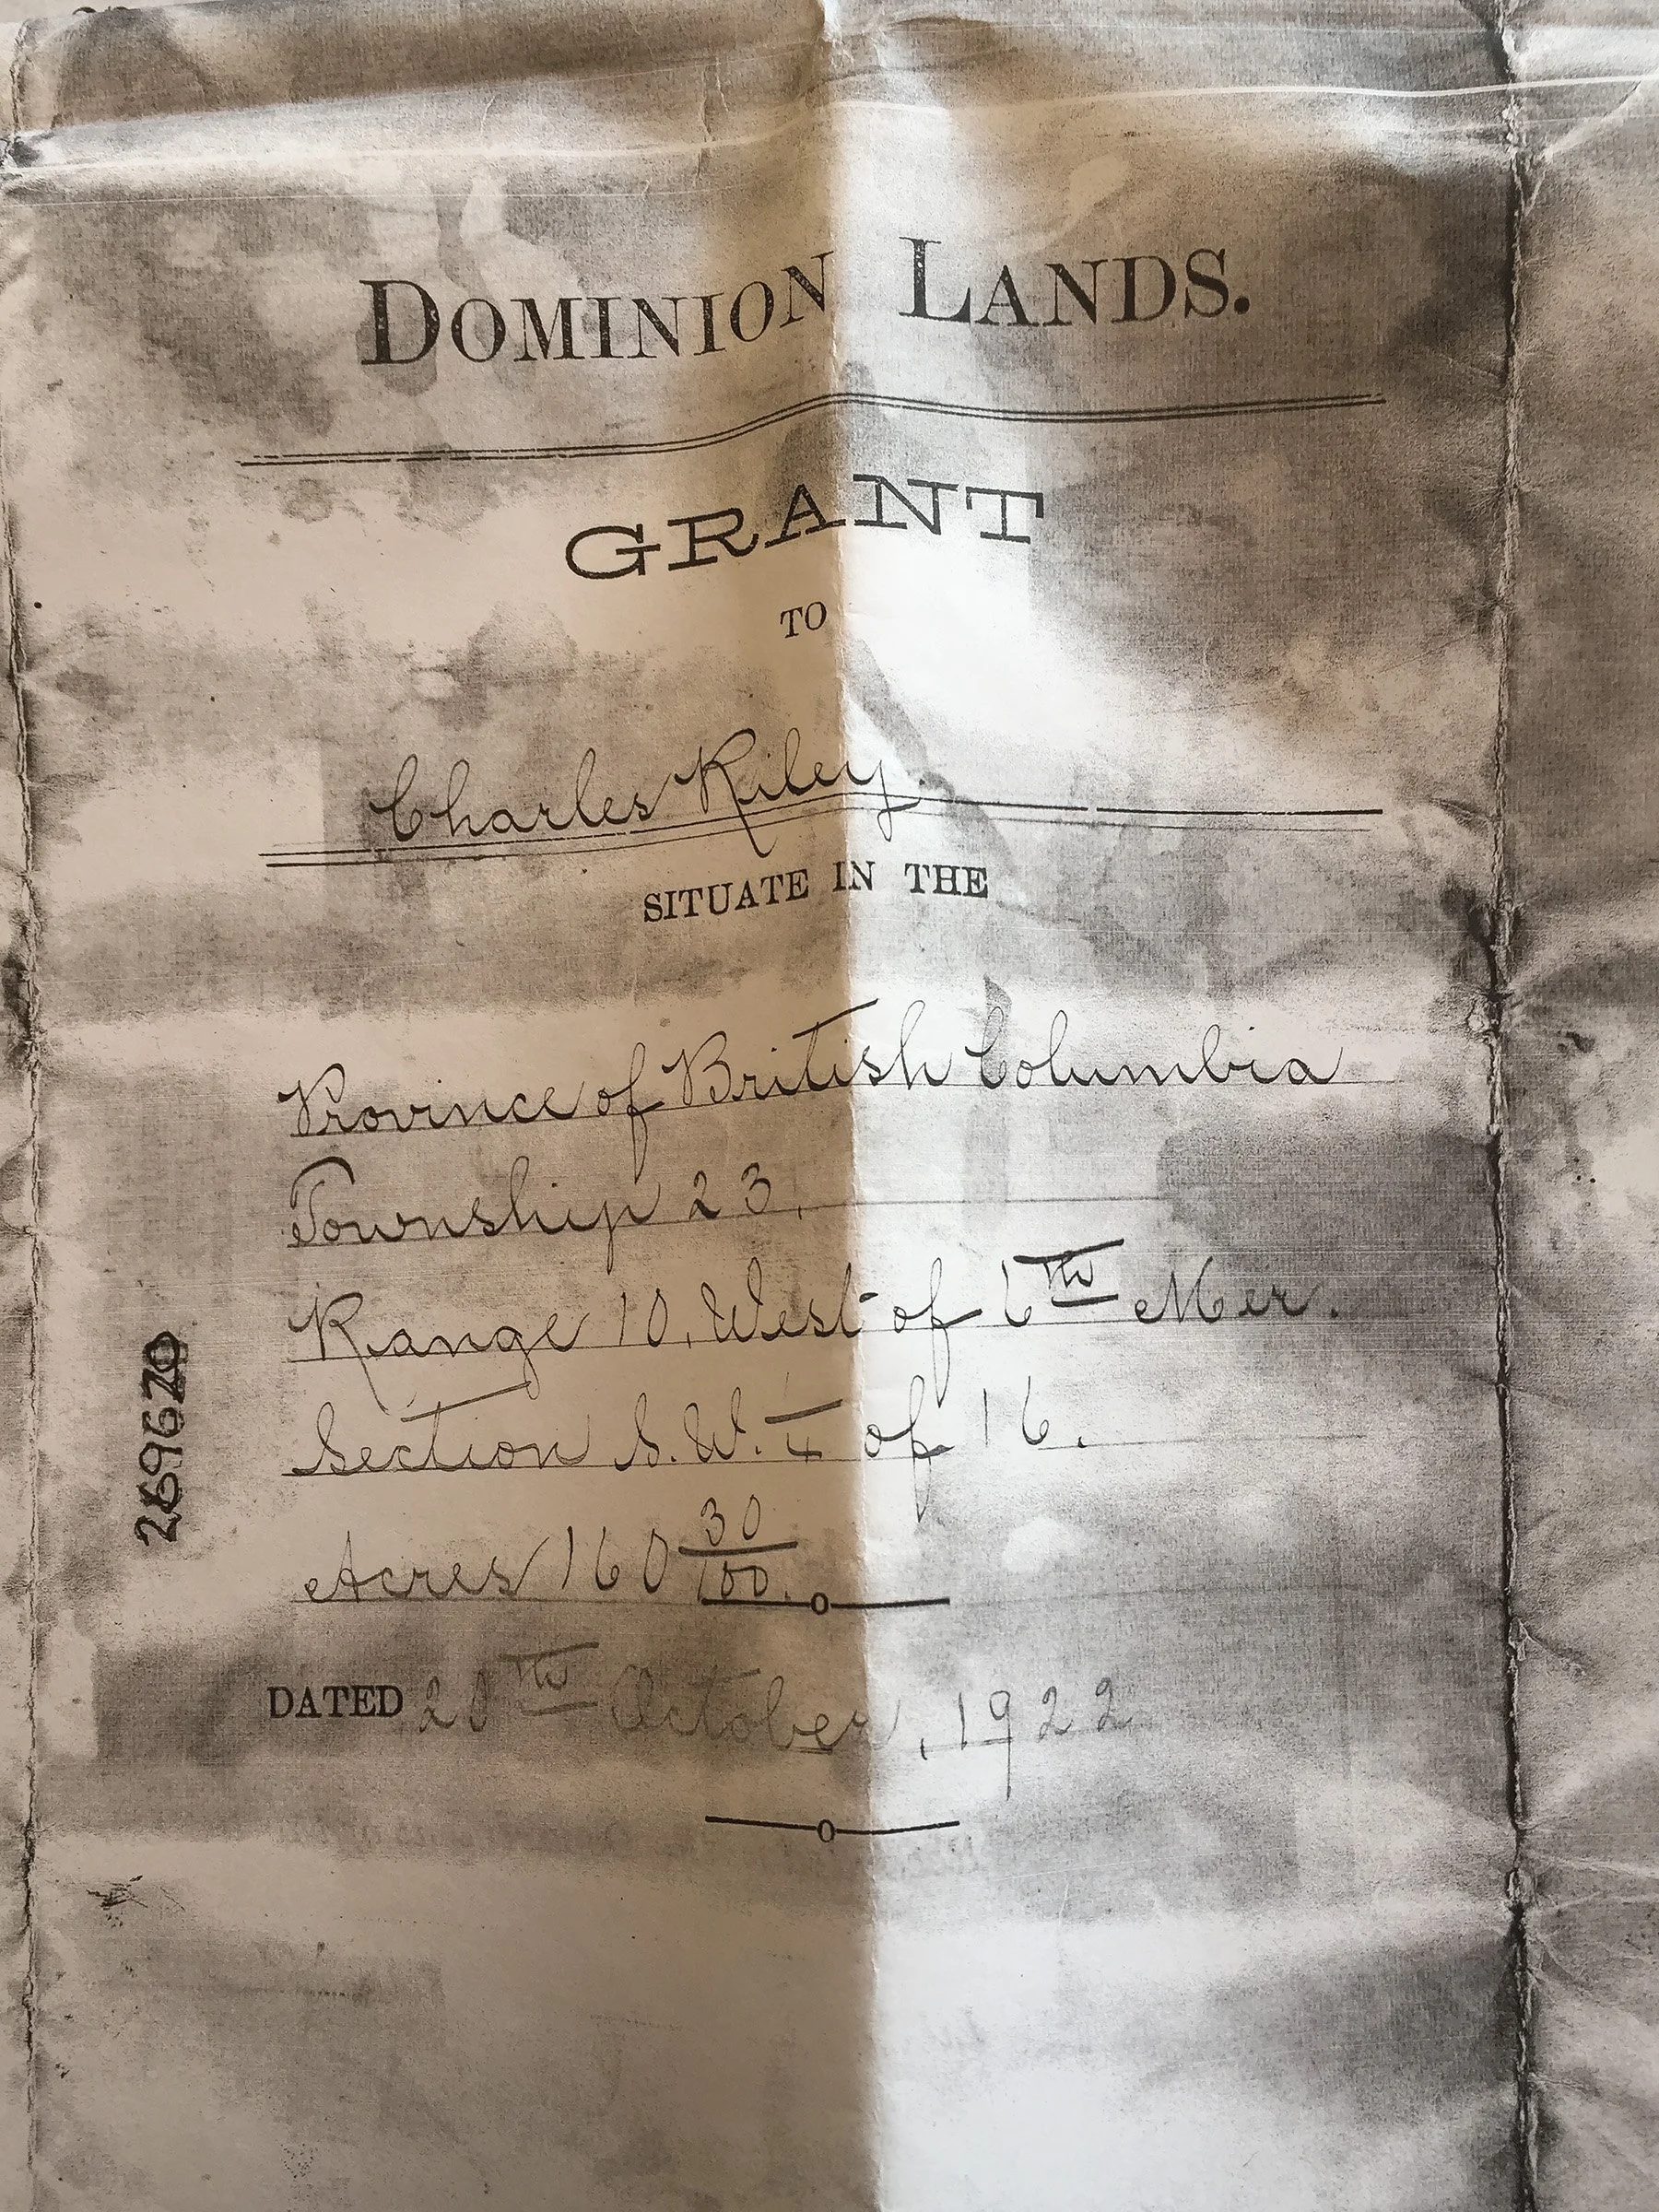 DOMINION LANDS.
GRANT
TO
Charles Riley.
SITUATE IN THE
Province of British Columbia
Township 23,
Range 10, West of 6th Mer.
Section S.W. 1/4 of 16.
Acres 160 30/100.
DATED 20th October, 1922
269670